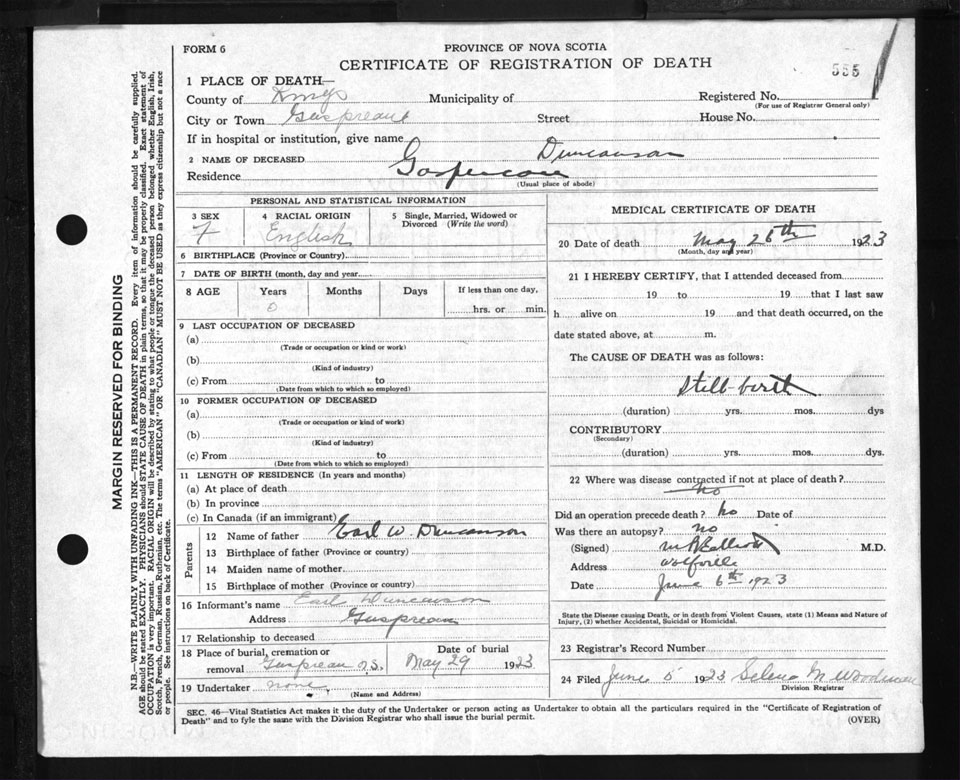 FORM 6
PROVINCE OF NOVA SCOTIA
CERTIFICATE OF REGISTRATION OF DEATH
555
1 PLACE OF DEATH—
County of Kings Municipality of Registered No.
(For use of Registrar General only)
City or Town Gaspreaux Street House No.
If in hospital or institution, give name
2 NAME OF DECEASED Duncanson
Residence Gaspereau
(Usual place of abode)
MARGIN RESERVED FOR BINDING
N.B.—WRITE PLAINLY WITH UNFADING INK—THIS IS A PERMANENT RECORD. Every item of information should be carefully supplied.
AGE should be stated EXACTLY. PHYSICIANS should STATE CAUSE OF DEATH in plain terms, so that it may be properly classified. Exact statement of
OCCUPATION is very important. RACIAL ORIGIN will be described by stating to what people or tongue the deceased person belonged whether English, Irish,
Scotch, French, German, Russian, Ruthenian, etc. The terms "AMERICAN" OR "CANADIAN" MUST NOT BE USED as they express citizenship but not a race
or people. See instructions on back of Certificate.
PERSONAL AND STATISTICAL INFORMATION
3 SEX
F
4 RACIAL ORIGIN
English
5 Single, Married, Widowed or
Divorced (Write the word)
6 BIRTHPLACE (Province or Country)
7 DATE OF BIRTH (month, day and year
8 AGE Years Months Days If less than one day,
0 hrs. or min.
9 LAST OCCUPATION OF DECEASED
(a)
(Trade or occupation or kind or work)
(b)
(Kind of industry)
(c) From to
(Date from which to which so employed)
10 FORMER OCCUPATION OF DECEASED
(a)
(Trade or occupation or kind of work)
(b)
(Kind of industry)
(c) From to
(Date from which to which so employed)
11 LENGTH OF RESIDENCE (In years and months)
(a) At place of death
(b) In province
(c) In Canada (if an immigrant)
Parents
12 Name of father Earl W. Duncanson
13 Birthplace of father (Province or country)
14 Maiden name of mother
15 Birthplace of mother (Province or country)
16 Informant's name Earl Duncanson
Address Guspreau
17 Relationship to deceased
18 Place of burial, cremation or
removal Guspreau N.S.
Date of burial
May 29 1923
19 Undertaker none
(Name and Address)
MEDICAL CERTIFICATE OF DEATH
20 Date of death May 26th 1923
(Month, day and year)
21 I HEREBY CERTIFY, that I attended deceased from
19 to 19 that I last saw
h alive on 19 and that death occurred, on the
date stated above, at m.
The CAUSE OF DEATH was as follows:
Still-birth
(duration) yrs. mos. dys
CONTRIBUTORY
(Secondary)
(duration) yrs. mos. dys.
22 Where was disease contracted if not at place of death?
no
Did an operation precede death? no Date of
Was there an autopsy? no
(Signed) M.D.
Address Wolfville
Date June 6th 1923
State the Disease causing Death, or in death from Violent Causes, state (1) Means and Nature of
Injury, (2) whether Accidental, Suicidal or Homicidal.
23 Registrar's Record Number
24 Filed June 5 1923 Selena M Woodman
Division Registrar
SEC. 46—Vital Statistics Act makes it the duty of the Undertaker or person acting as Undertaker to obtain all the particulars required in the "Certificate of Registration of
Death" and to fyle the same with the Division Registrar who shall issue the burial permit.
(OVER)